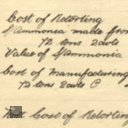 Cost of Retorting
Ammonea made from
72 tons 2cwts
Value of Ammonia
Cost of Manufacturing
72 tons 2cwts
Cost of Retortin